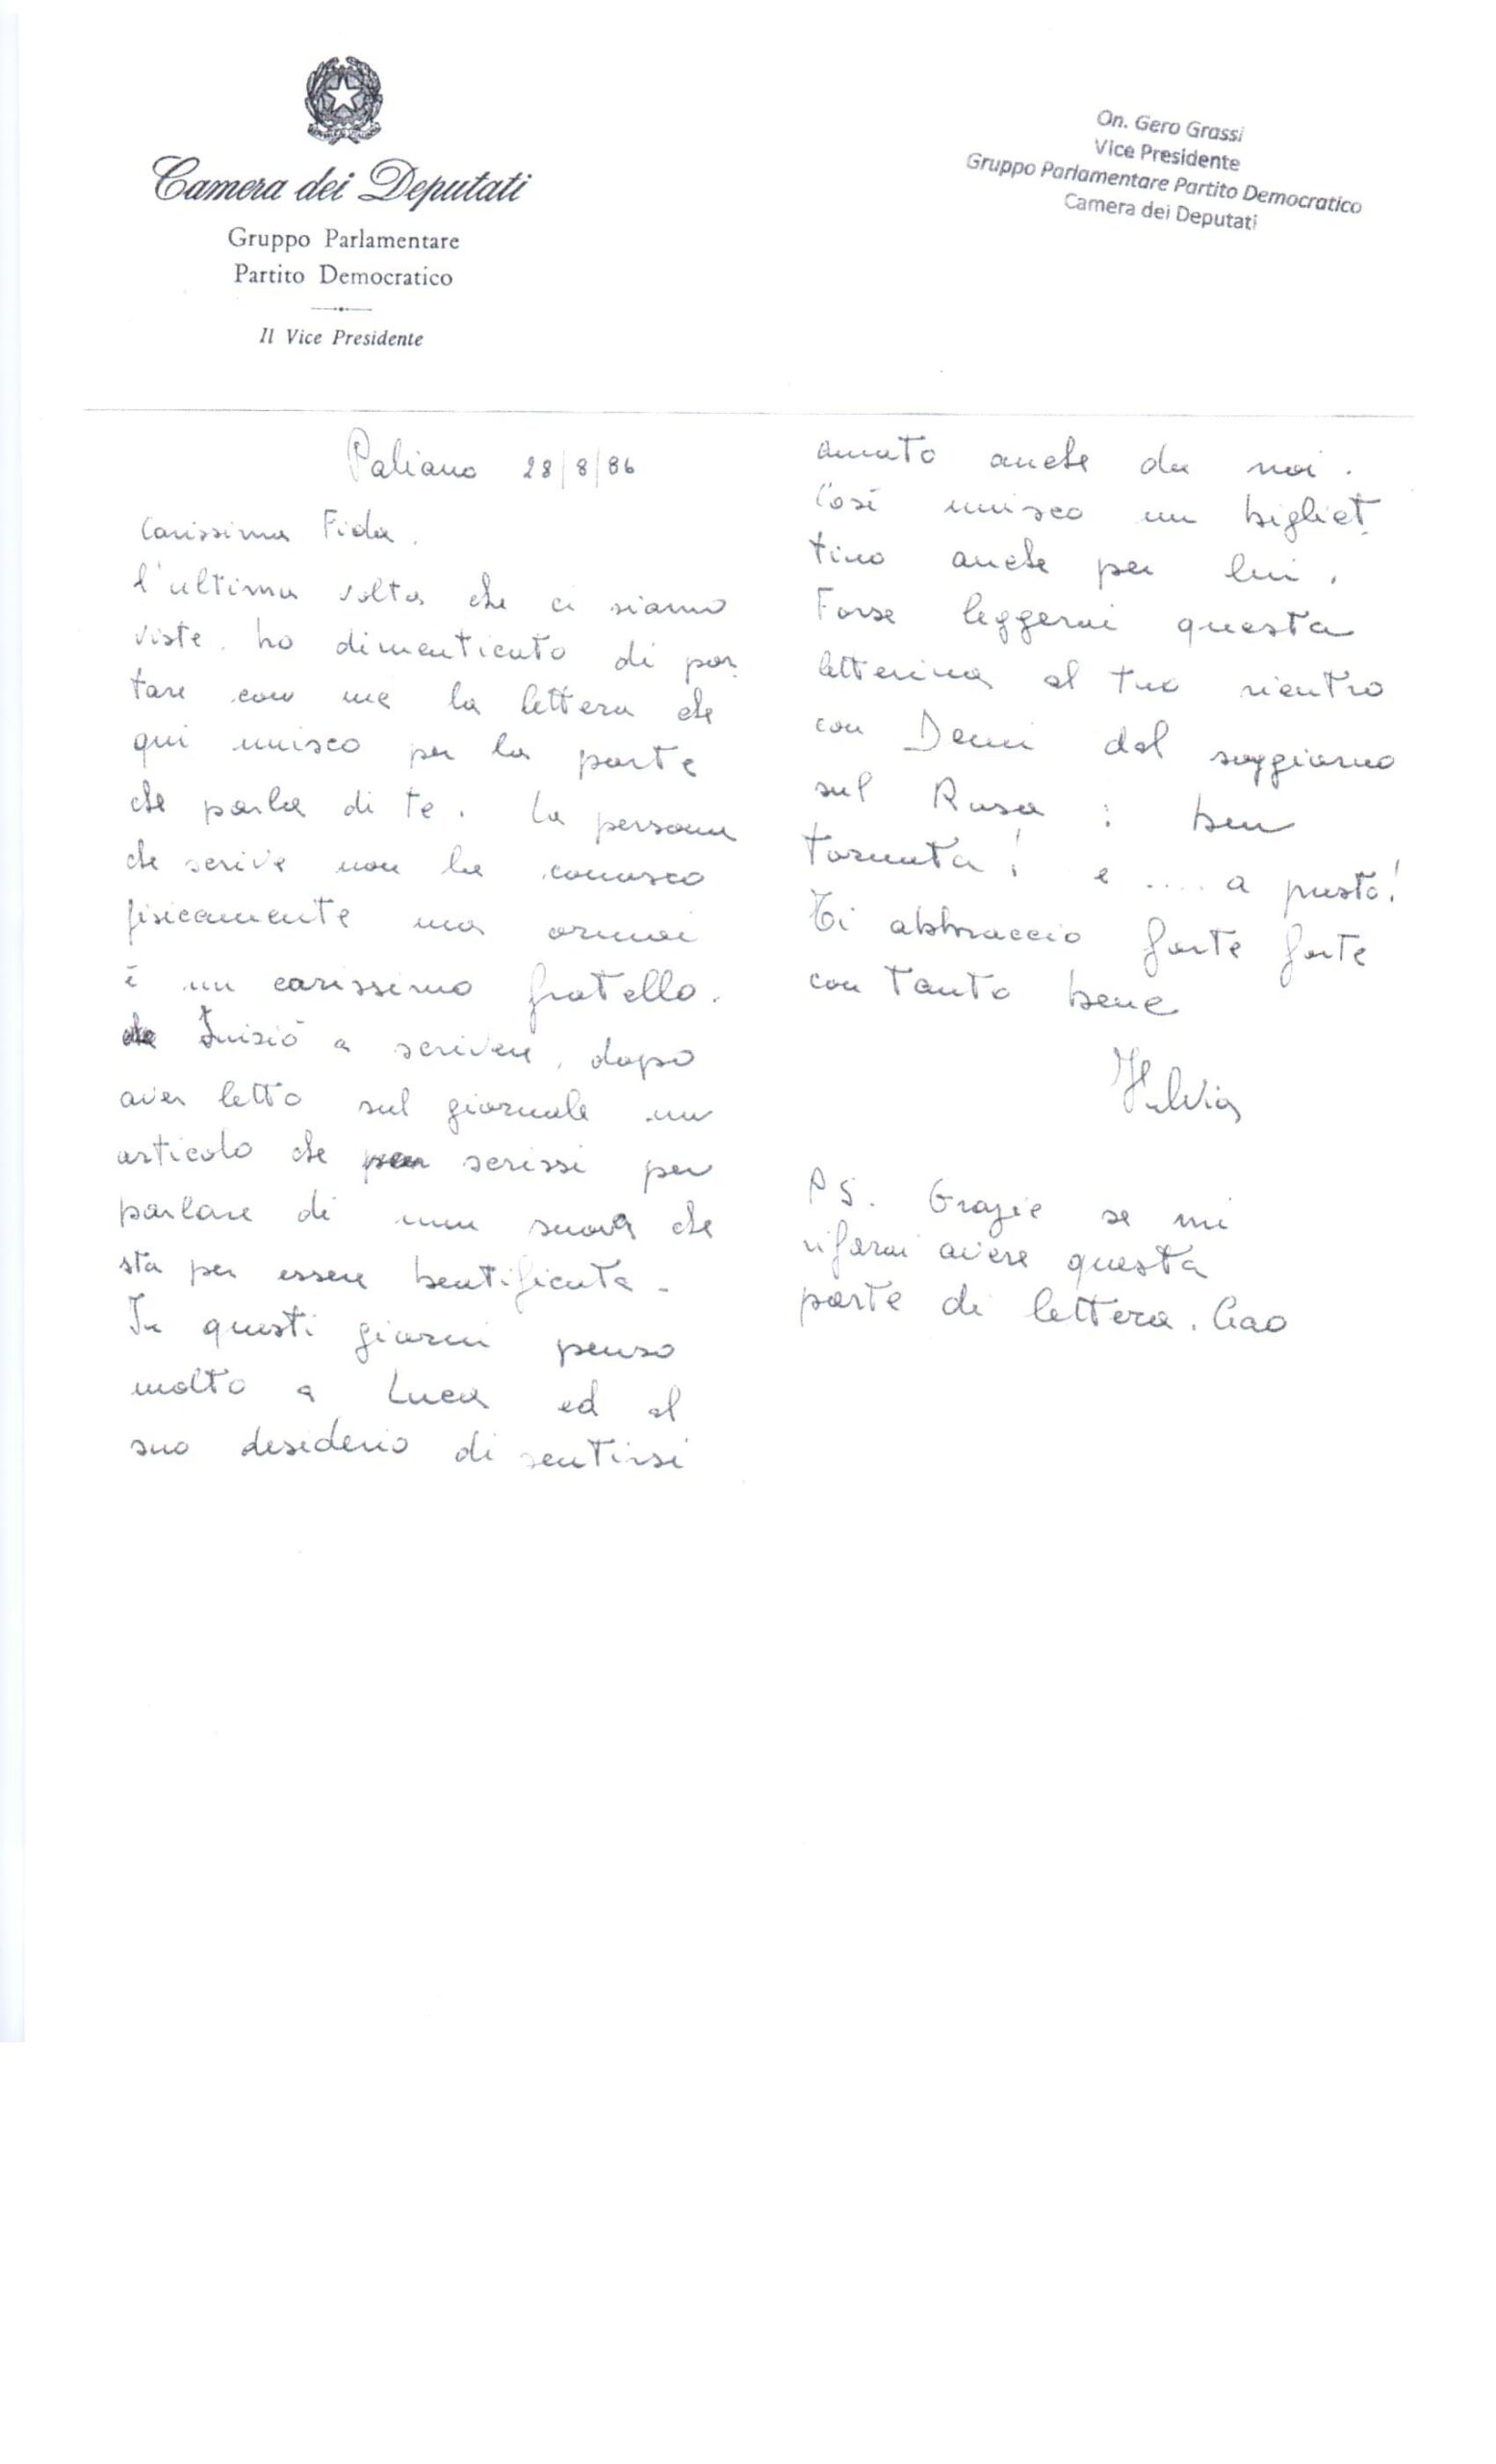 Camera dei Deputati
Gruppo Parlamentare
Partito Democratico
Il Vice Presidente
On. Gero Grassi
Vice Presidente
Gruppo Parlamentare Partito Democratico
Camera dei Deputati
Paliano 28/8/86
Carissima Fida.
l'ultima volta che ci siamo
viste. ho dimenticato di por
tare con me la lettera che
qui unisco per la parte
che parla di te. La persona
che scrive non la conosco
fisicamente ma ormai
è un carissimo fratello.
Iniziò a scrivere, dopo
aver letto sul giornale un
articolo che scrissi per
parlare di una suora che
sta per essere beatificata.
In questi giorni penso
molto a Luca ed al
suo desiderio di sentirsi
amato anche da noi.
Così unisco un bigliet
tino anche per lui.
Forse leggerai questa
letterina al tuo rientro
con Demi dal soggiorno
sul Rosa: ben
tornata! e .... a presto!
Ti abbraccio forte forte
con tanto bene
PS. Grazie se mi
rifarai avere questa
parte di lettera. Ciao